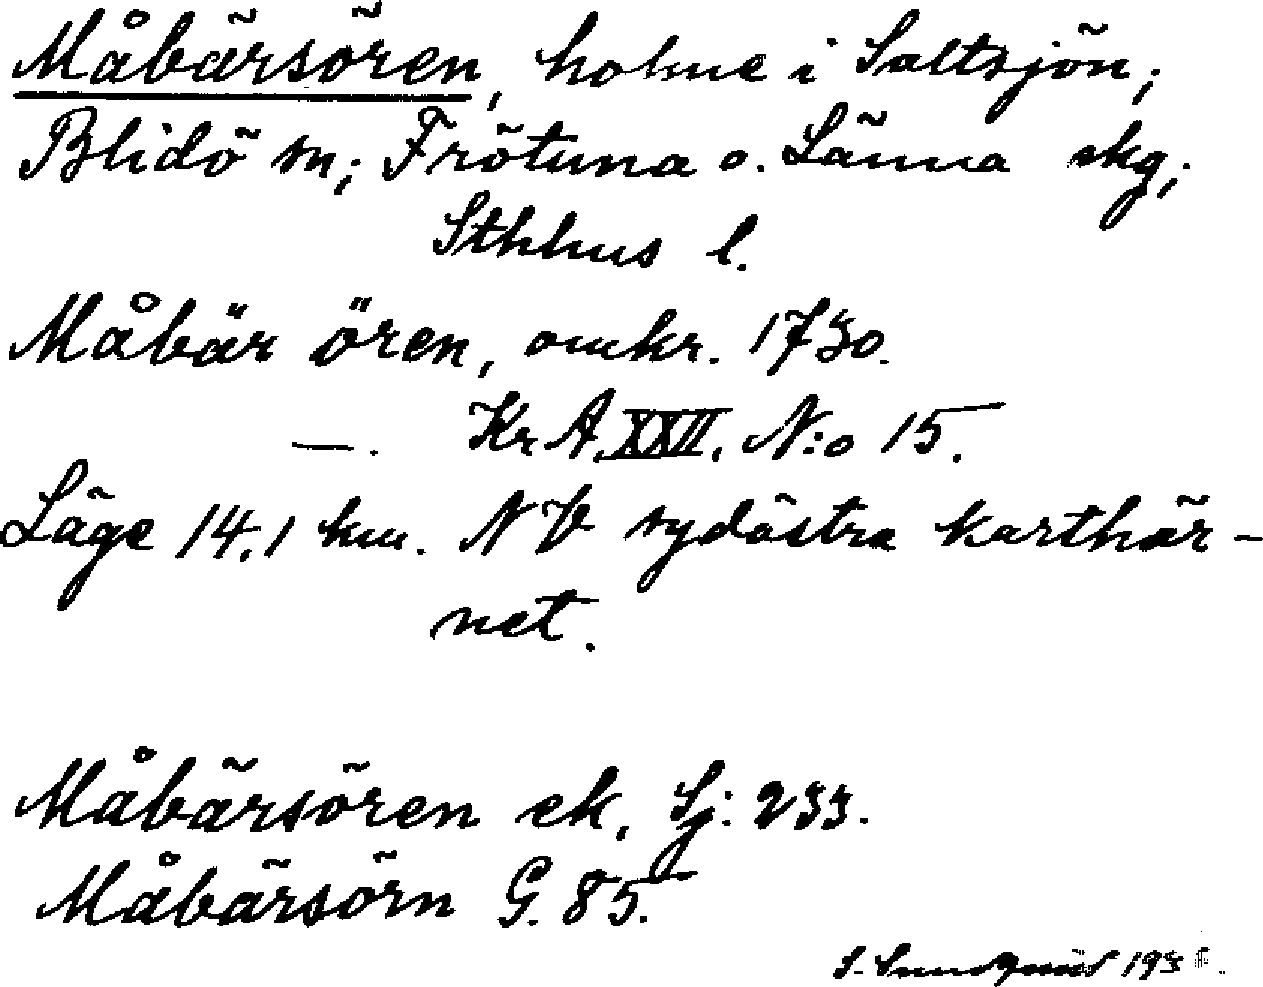 Måbärsören, holme i Saltsjön;
Blidö sn; Frötuna o. Länna skg;
Sthlms l.
Måbär ören, omkr. 1730.
—. Kr A. XXII. N:o 15.
Läge 14,1 km. NV sydöstra karthör-
net.
Måbärsören ek, Sj: 233.
Måbärsörn G. 85.
S. Sundquist